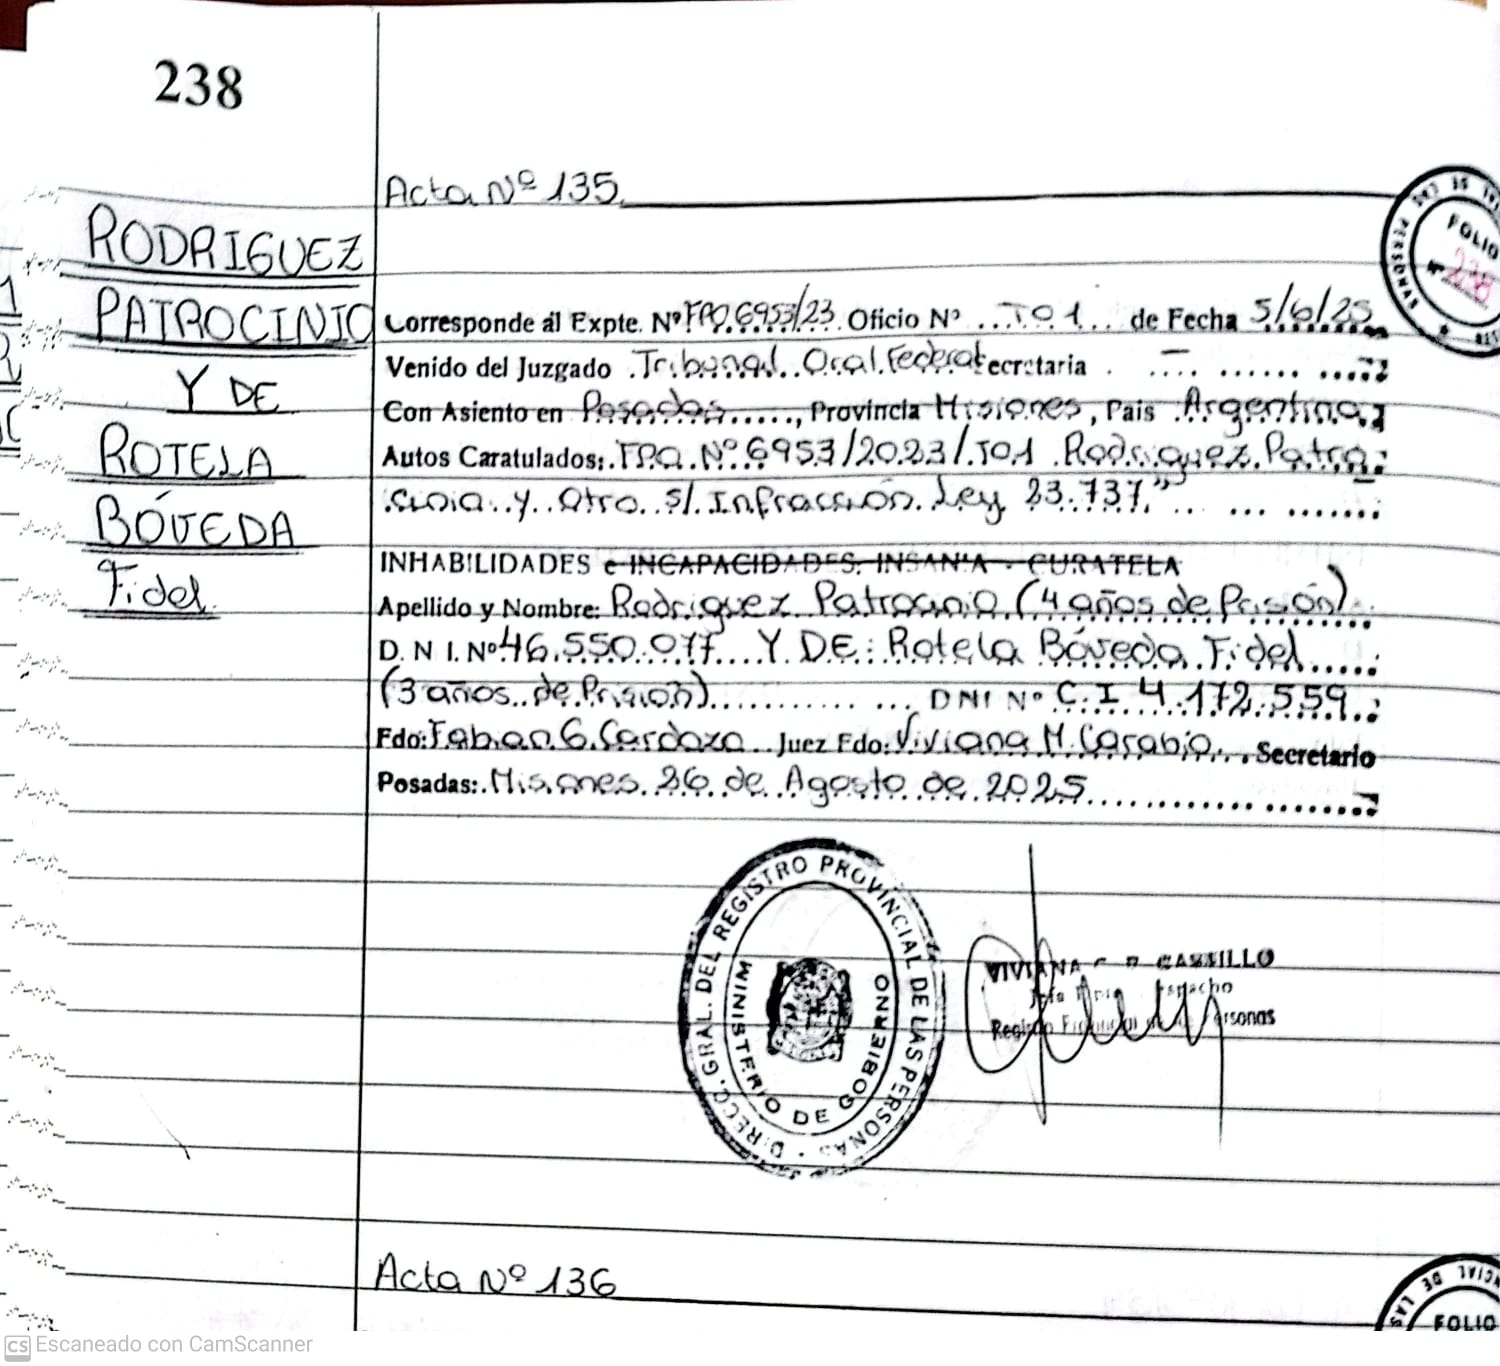 238
Acta Nº 135
RODRIGUEZ
PATROCINIO
Y DE
ROTELA
BÓVEDA
Fidel
FOLIO
Nº 238
Corresponde al Expte. Nº FPO.6953/23 Oficio Nº ...TO1... de Fecha 5/6/25
Venido del Juzgado .Tribunal Oral Federal Secretaria . — .... ...... .....
Con Asiento en Posadas....., Provincia Misiones, Pais .Argentina.
Autos Caratulados:.FPO.Nº.6953/2023/.TO1 .Rodriguez.Patro
.cinio..y..Otro..s/.Infracción.Ley 23.737." .. ... ........
INHABILIDADES e INCAPACIDADES. INSANIA - CURATELA
Apellido y Nombre: Rodriguez Patrocinio (4 años de Prisión)
D. N I. Nº 46.550.077.... Y DE: Rotela Bóveda Fidel.....
(3 años..de Prisión)............ ... DNI Nº C.I 4.172.559.
Fdo: Fabian G. Cardozo.. Juez Fdo: Viviana M. Carabio... Secretario
Posadas:.Misiones.26.de.Agosto.de.2025.....................
DIRECC. GRAL. DEL REGISTRO PROVINCIAL DE LAS PERSONAS
MINISTERIO DE GOBIERNO
VIVIANA CASTILLO
Despacho
Personas
Acta Nº 136
FOLIO
CS Escaneado con CamScanner